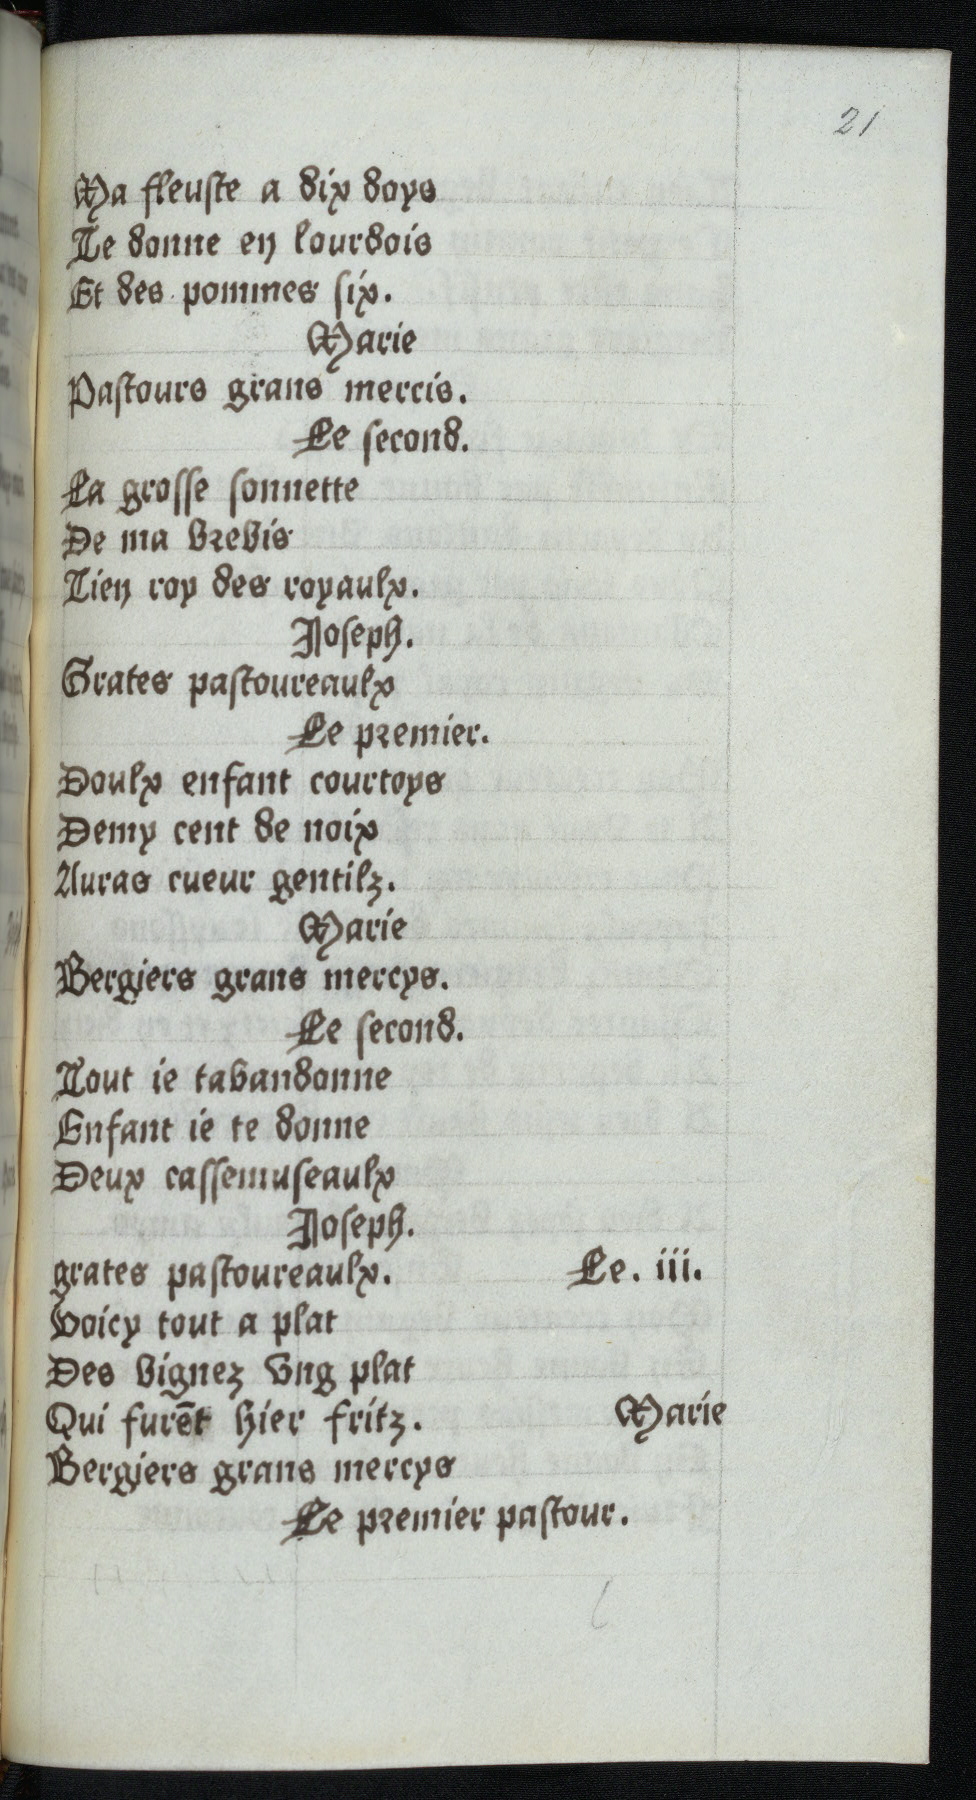 21
Ma fleuste a dix doys
Te donne en lourdois
Et des pommes six.
Marie
Pastours grans mercis.
Le second.
La grosse sonnette
De ma brebis
Tien roy des royaulx.
Joseph.
Grates pastoureaulx
Le premier.
Doulx enfant courtoys
Demy cent de noix
Auras cueur gentilz.
Marie
Bergiers grans mercys.
Le second.
Tout ie tabandonne
Enfant ie te donne
Deux cassemuseaulx
Joseph.
grates pastoureaulx. Le. iii.
Voicy tout a plat
Des bignez vng plat
Qui furēt hier fritz. Marie
Bergiers grans mercys
Le premier pastour.